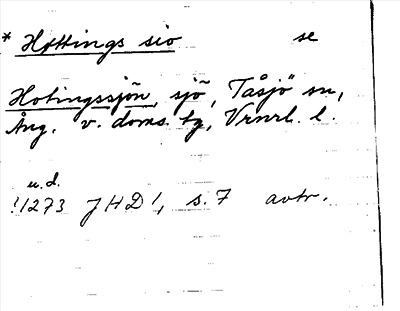 * Hottings sio se
Hotingssjön, sjö, Tåsjö sn,
Ång. v. doms. tg, Vrnrl. l.
u.d.
!1273 JHD 1, s. 7 avtr.